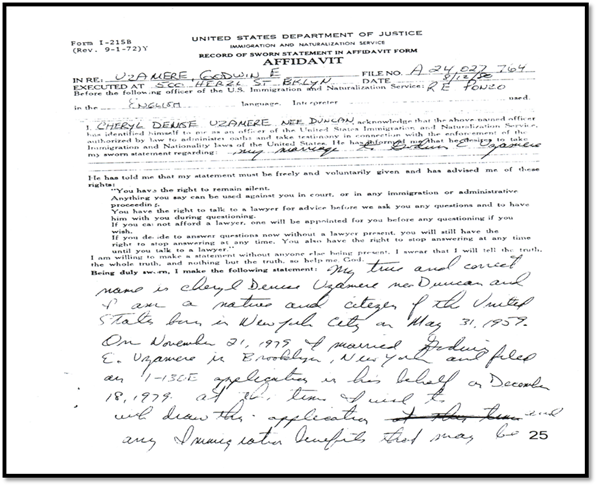 UNITED STATES DEPARTMENT OF JUSTICE
Form I-215B
(Rev. 9-1-72)Y
IMMIGRATION AND NATURALIZATION SERVICE
RECORD OF SWORN STATEMENT IN AFFIDAVIT FORM
AFFIDAVIT
IN RE: UZAMERE GODWIN E FILE NO. A 24 027 764
EXECUTED AT 500 HERZL ST BKLYN DATE 8/12/80
Before the following officer of the U.S. Immigration and Naturalization Service: R E
in the ENGLISH language. Interpreter used.
I, CHERYL DENISE UZAMERE NEE DUNCAN, acknowledge that the above named officer
has identified himself to me as an officer of the United States Immigration and Naturalization Service,
authorized by law to administer oaths and take testimony in connection with the enforcement of the
Immigration and Nationality laws of the United States. He has informed me that he desires to take
my sworn statement regarding: my marriage to Godwin Uzamere
He has told me that my statement must be freely and voluntarily given and has advised me of these
rights:
"You have the right to remain silent.
Anything you say can be used against you in court, or in any immigration or administrative
proceeding.
You have the right to talk to a lawyer for advice before we ask you any questions and to have
him with you during questioning.
If you cannot afford a lawyer, one will be appointed for you before any questioning if you
wish.
If you decide to answer questions now without a lawyer present, you will still have the
right to stop answering at any time. You also have the right to stop answering at any time
until you talk to a lawyer."
I am willing to make a statement without anyone else being present. I swear that I will tell the truth,
the whole truth, and nothing but the truth, so help me God.
Being duly sworn, I make the following statement: My true and correct
name is Cheryl Denise Uzamere nee Duncan and
I am a native and citizen of the United
States born in New York City on May 31, 1959.
On November 21, 1979 I married Godwin
E. Uzamere in Brooklyn, New York and filed
an I-130E application in his behalf on December
18, 1979. at this time I wish to
withdraw this application at this time and
any Immigration benefits that may be 25